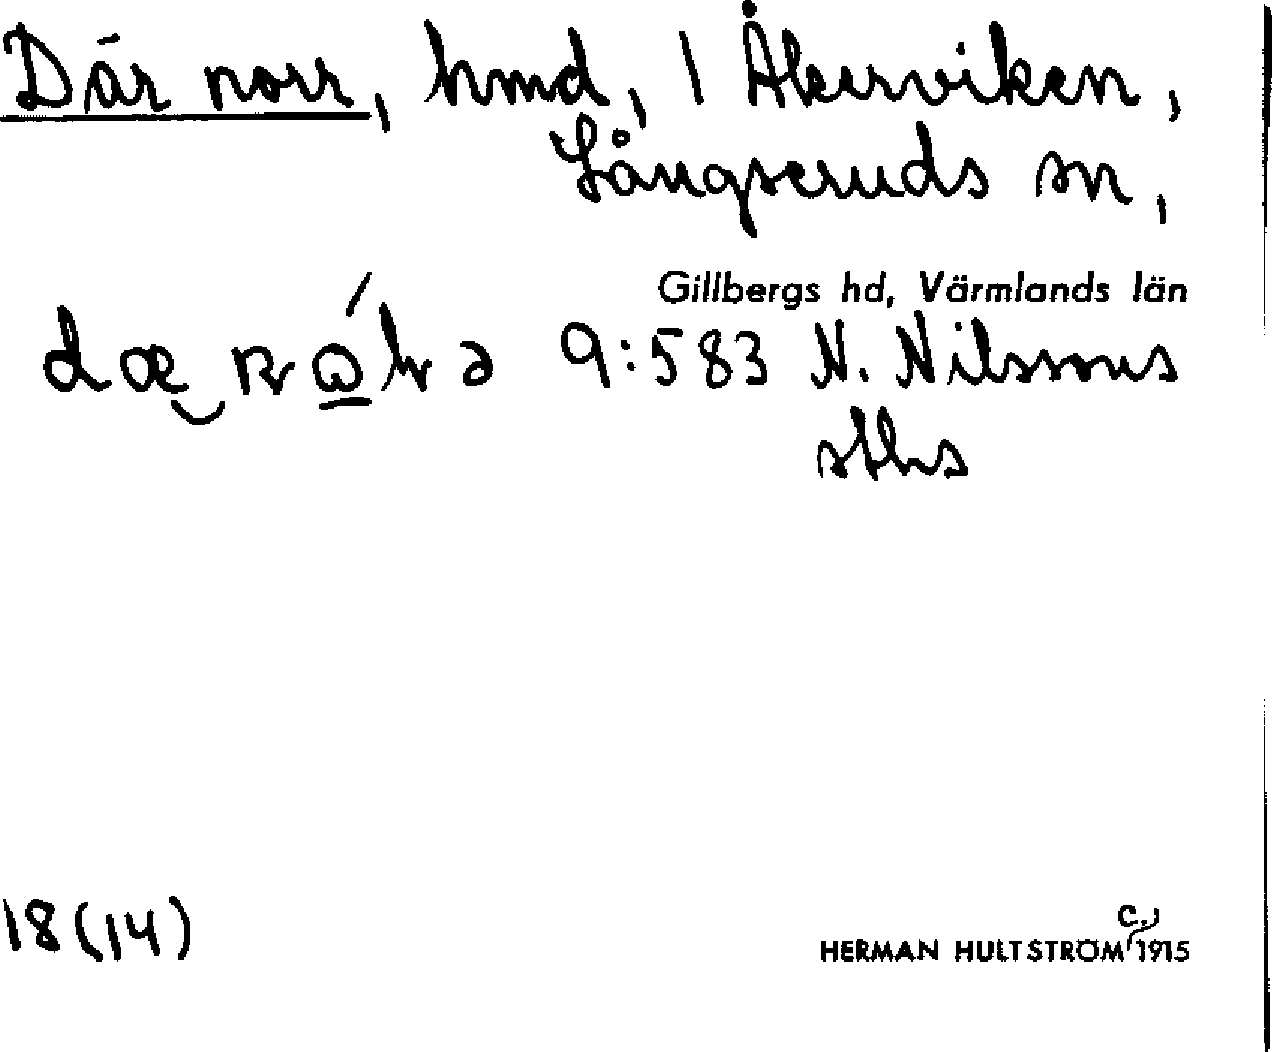 Där norr, hmd, 1 Åkerviken,
Långseruds sn,
Gillbergs hd, Värmlands län
9:583 N. Nilssons
sths
18 (14)
c.,
HERMAN HULTSTRÖM 1915